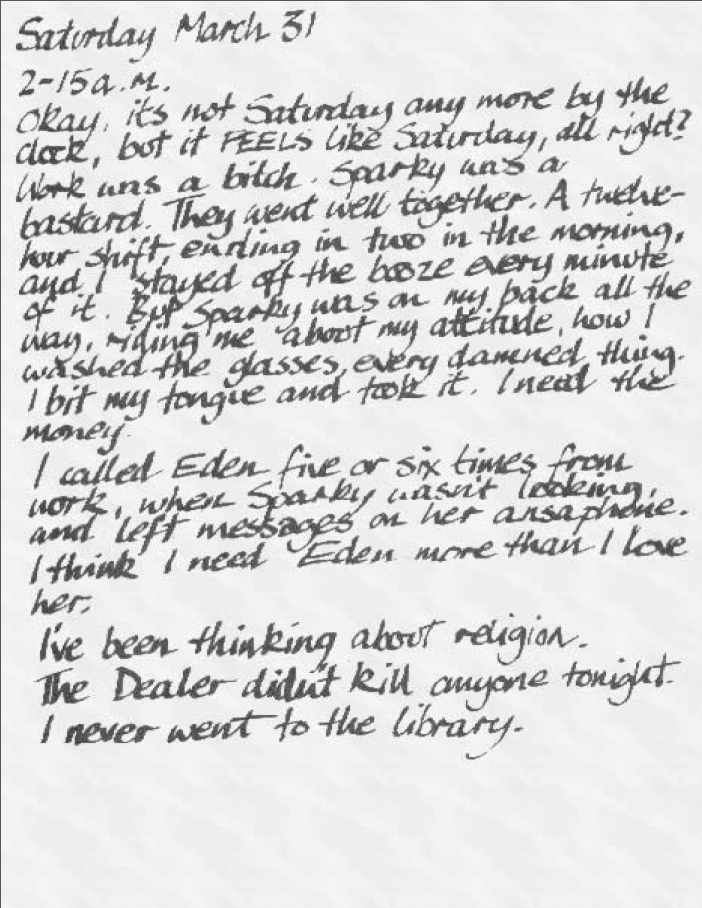 Saturday March 31
2-15 a.m.
Okay, its not Saturday any more by the
clock, but it FEELS like Saturday, all right?
Work was a bitch. Sparky was a
bastard. They went well together. A twelve-
hour shift, ending in two in the morning,
and I stayed off the booze every minute
of it. But Sparky was on my back all the
way, riding me about my attitude, how I
washed the glasses, every damned thing.
I bit my tongue and took it. I need the
money.
I called Eden five or six times from
work, when Sparky wasn't looking,
and left messages on her ansaphone.
I think I need Eden more than I love
her.
I've been thinking about religion.
The Dealer didn't kill anyone tonight.
I never went to the library.